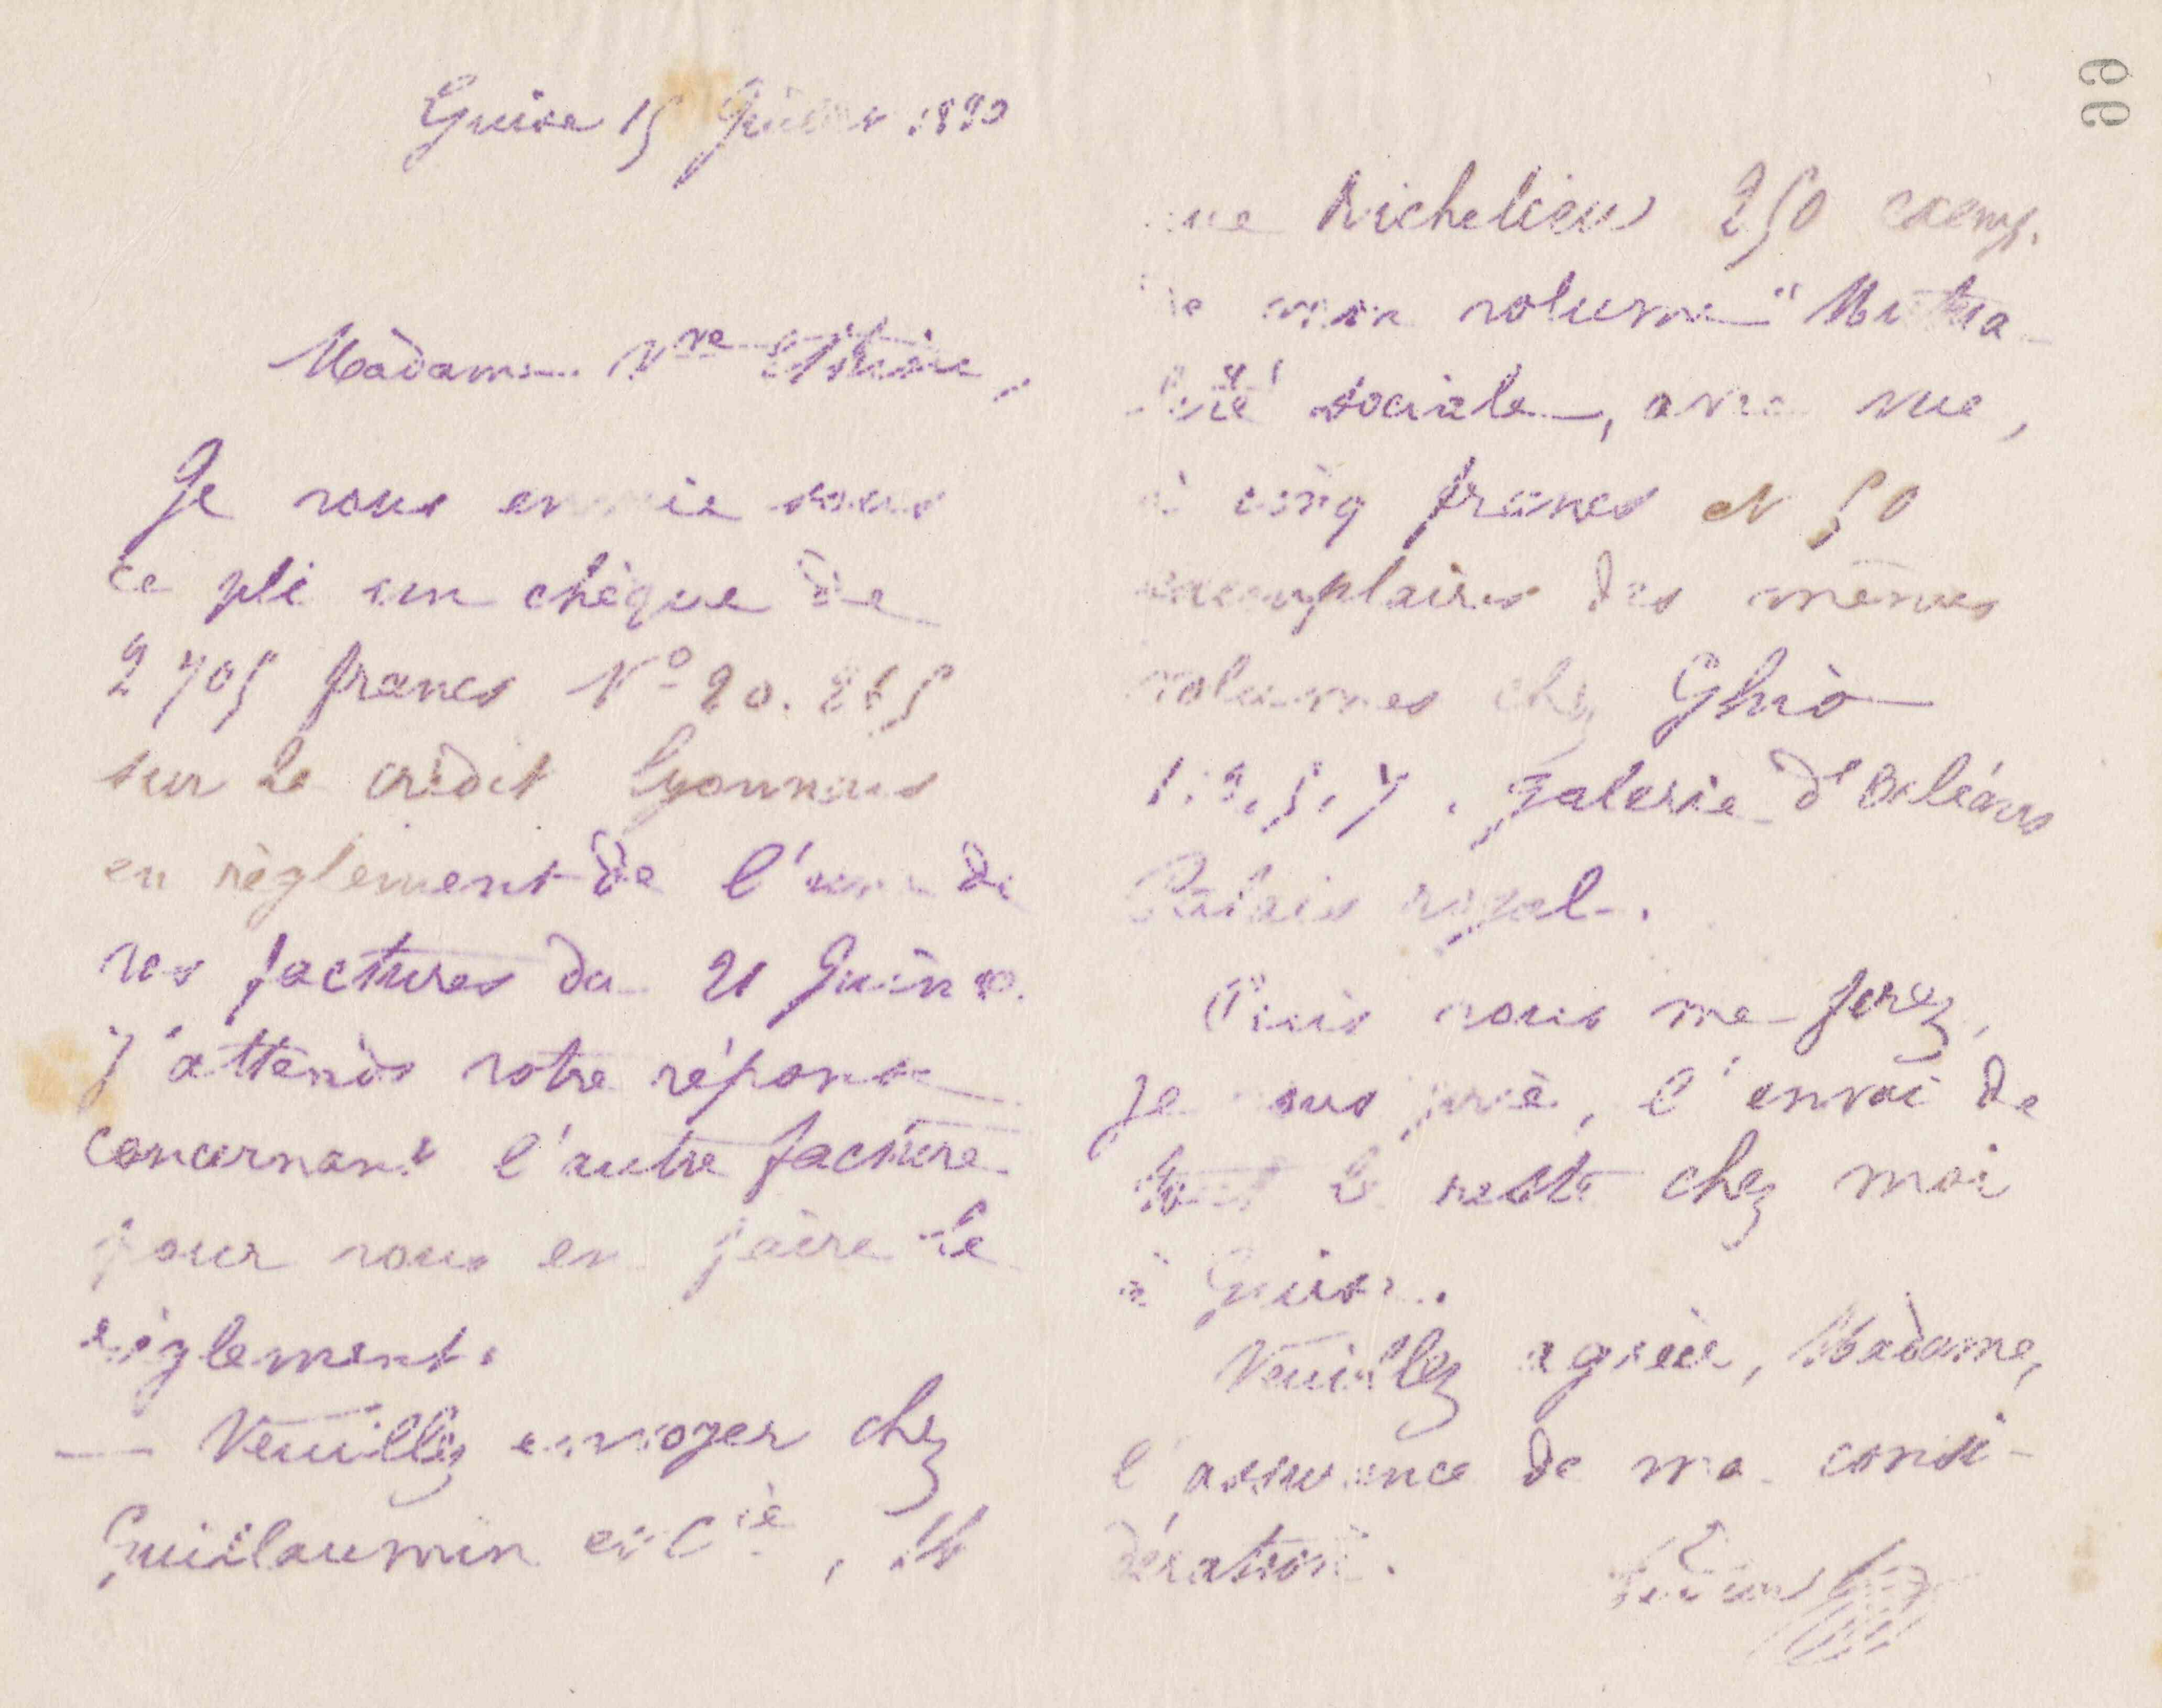 Guise 15 Juillet 1880
Madame Vve
Je vous envoie sous
ce pli un chèque de
2705 francs No 20.265
sur le crédit lyonnais
en règlement de l'une de
vos factures du 21 Juin
J'attends votre réponse
concernant l'autre facture
pour vous en faire le
règlement.
— Veuillez envoyer chez
Guillaumin et Cie, 14
rue Richelieu 250 exemp.
de mon volume "Mutua-
lité sociale, avec vue,
à cinq francs et 50
exemplaires des mêmes
volumes chez Ghio
1.3.5.7. galerie d'Orléans
Palais royal.
Puis vous me ferez,
je vous prie, l'envoi de
tout le reste chez moi
à Guise.
Veuillez agréer, Madame,
l'assurance de ma consi-
dération.
99